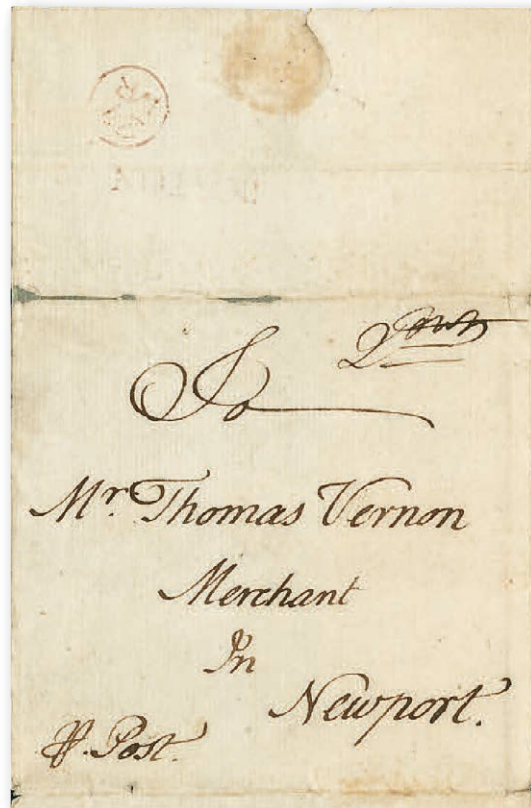 To
Mr. Thomas Vernon
Merchant
In
Newport.
Post.